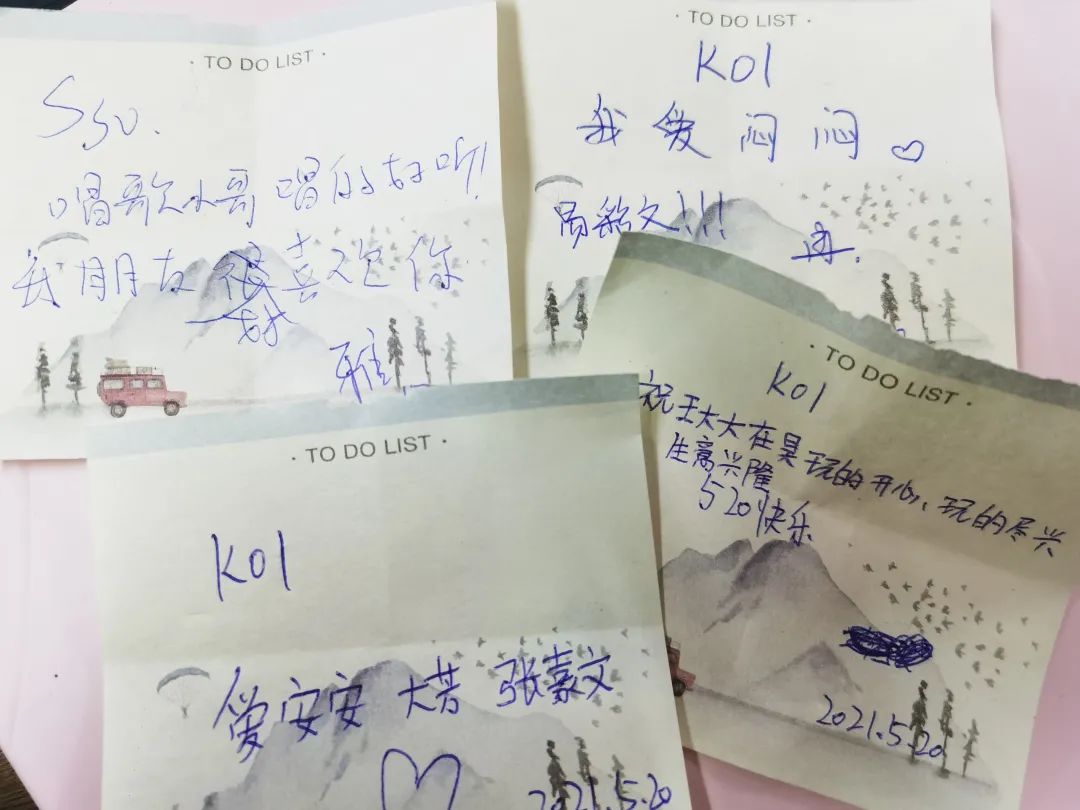 · TO DO LIST ·
Ssu.
唱歌小哥唱的好听!
我朋友好喜欢你
雅
· TO DO LIST ·
K01
我爱闷闷♡
文!!!
· TO DO LIST ·
K01
祝王大大在昊玩的开心、玩的尽兴
生意兴隆
520快乐
2021.5.20
· TO DO LIST ·
K01
爱安安 大苦 张嘉文
♡
2021.5.20